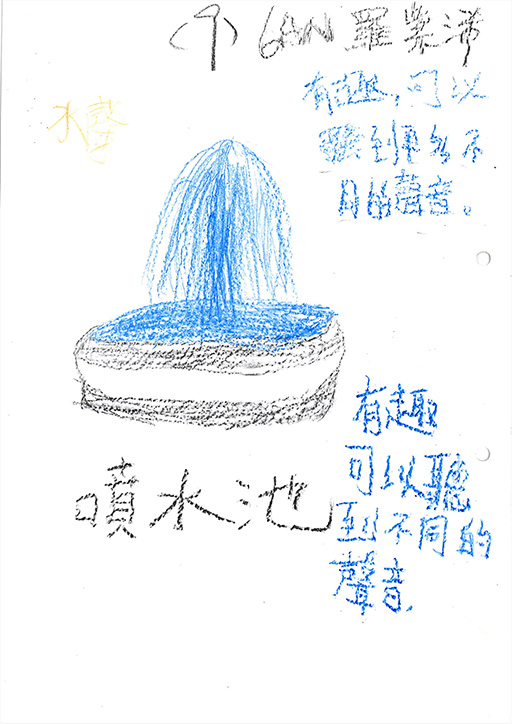 羅
水聲
有趣,可以
聽到很多不
同的聲音。
噴水池
有趣
可以聽
到不同的
聲音.